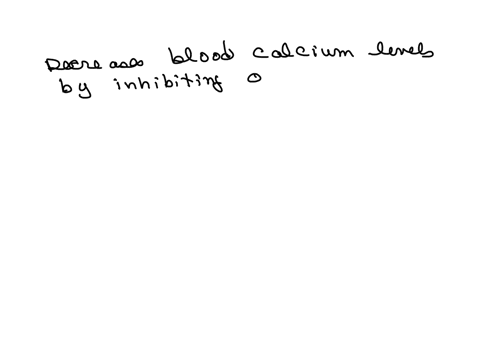 Decreases blood calcium levels
by inhibiting o